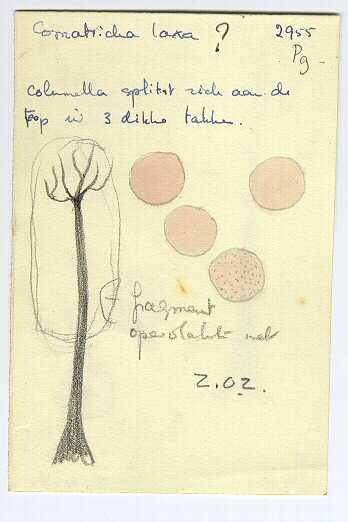 Comatricha laxa ? 2955
Pg -
columella splitst zich aan de
top in 3 dikke takken.
fragment
oppervlakte net
Z.O.Z.